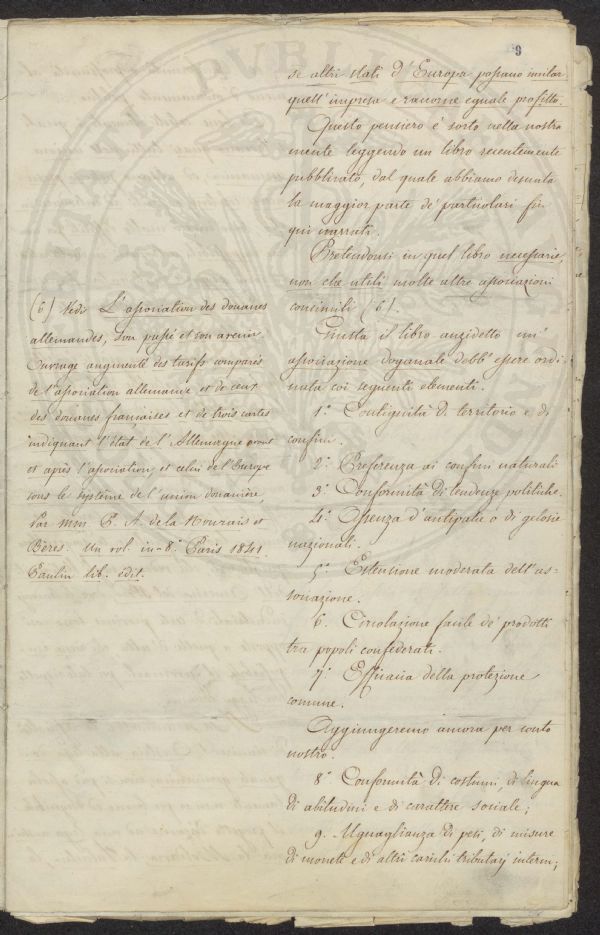 9
se altri stati d'Europa possano imitar
quell'impresa e ritrarne eguale profitto.
Questo pensiero è sorto nella nostra
mente leggendo un libro recentemente
pubblicato, dal quale abbiamo desunta
la maggior parte de' particolari fin
qui narrati.
Pretendonsi in quel libro necessarie,
non che utili molte altre associazioni
consimili (6).
Giusta il libro anzidetto un'
associazione doganale debb'essere ordi
nata coi seguenti elementi.
1° Contiguità di territorio e di
confini.
2° Preferenza ai confini naturali
3° Conformità di tendenze politiche.
4° Assenza d'antipatie o di gelosie
nazionali.
5° Estensione moderata dell'as-
sociazione.
6. Circolazione facile de' prodotti
tra popoli confederati.
7° Efficacia della protezione
comune.
Aggiungeremo ancora per conto
nostro.
8° Conformità di costumi, di lingua
di abitudini e di carattere sociale;
9. Uguaglianza di pesi, di misure
di monete e di altri carichi tributarj interni;
(6) Vedi L'association des douanes
allemandes, son passé et son avenir
Ouvrage augmenté des tarifs comparés
de l'association allemande et de ceux
des douanes françaises et de trois cartes
indiquant l'état de l'Allemagne avant
et après l'association, et celui de l'Europe
sous le système de l'union douanière,
Par MM P. A. de la Nourais et
Bères. Un vol. in-8° Paris 1841.
Paulin lib. edit.
PVBL